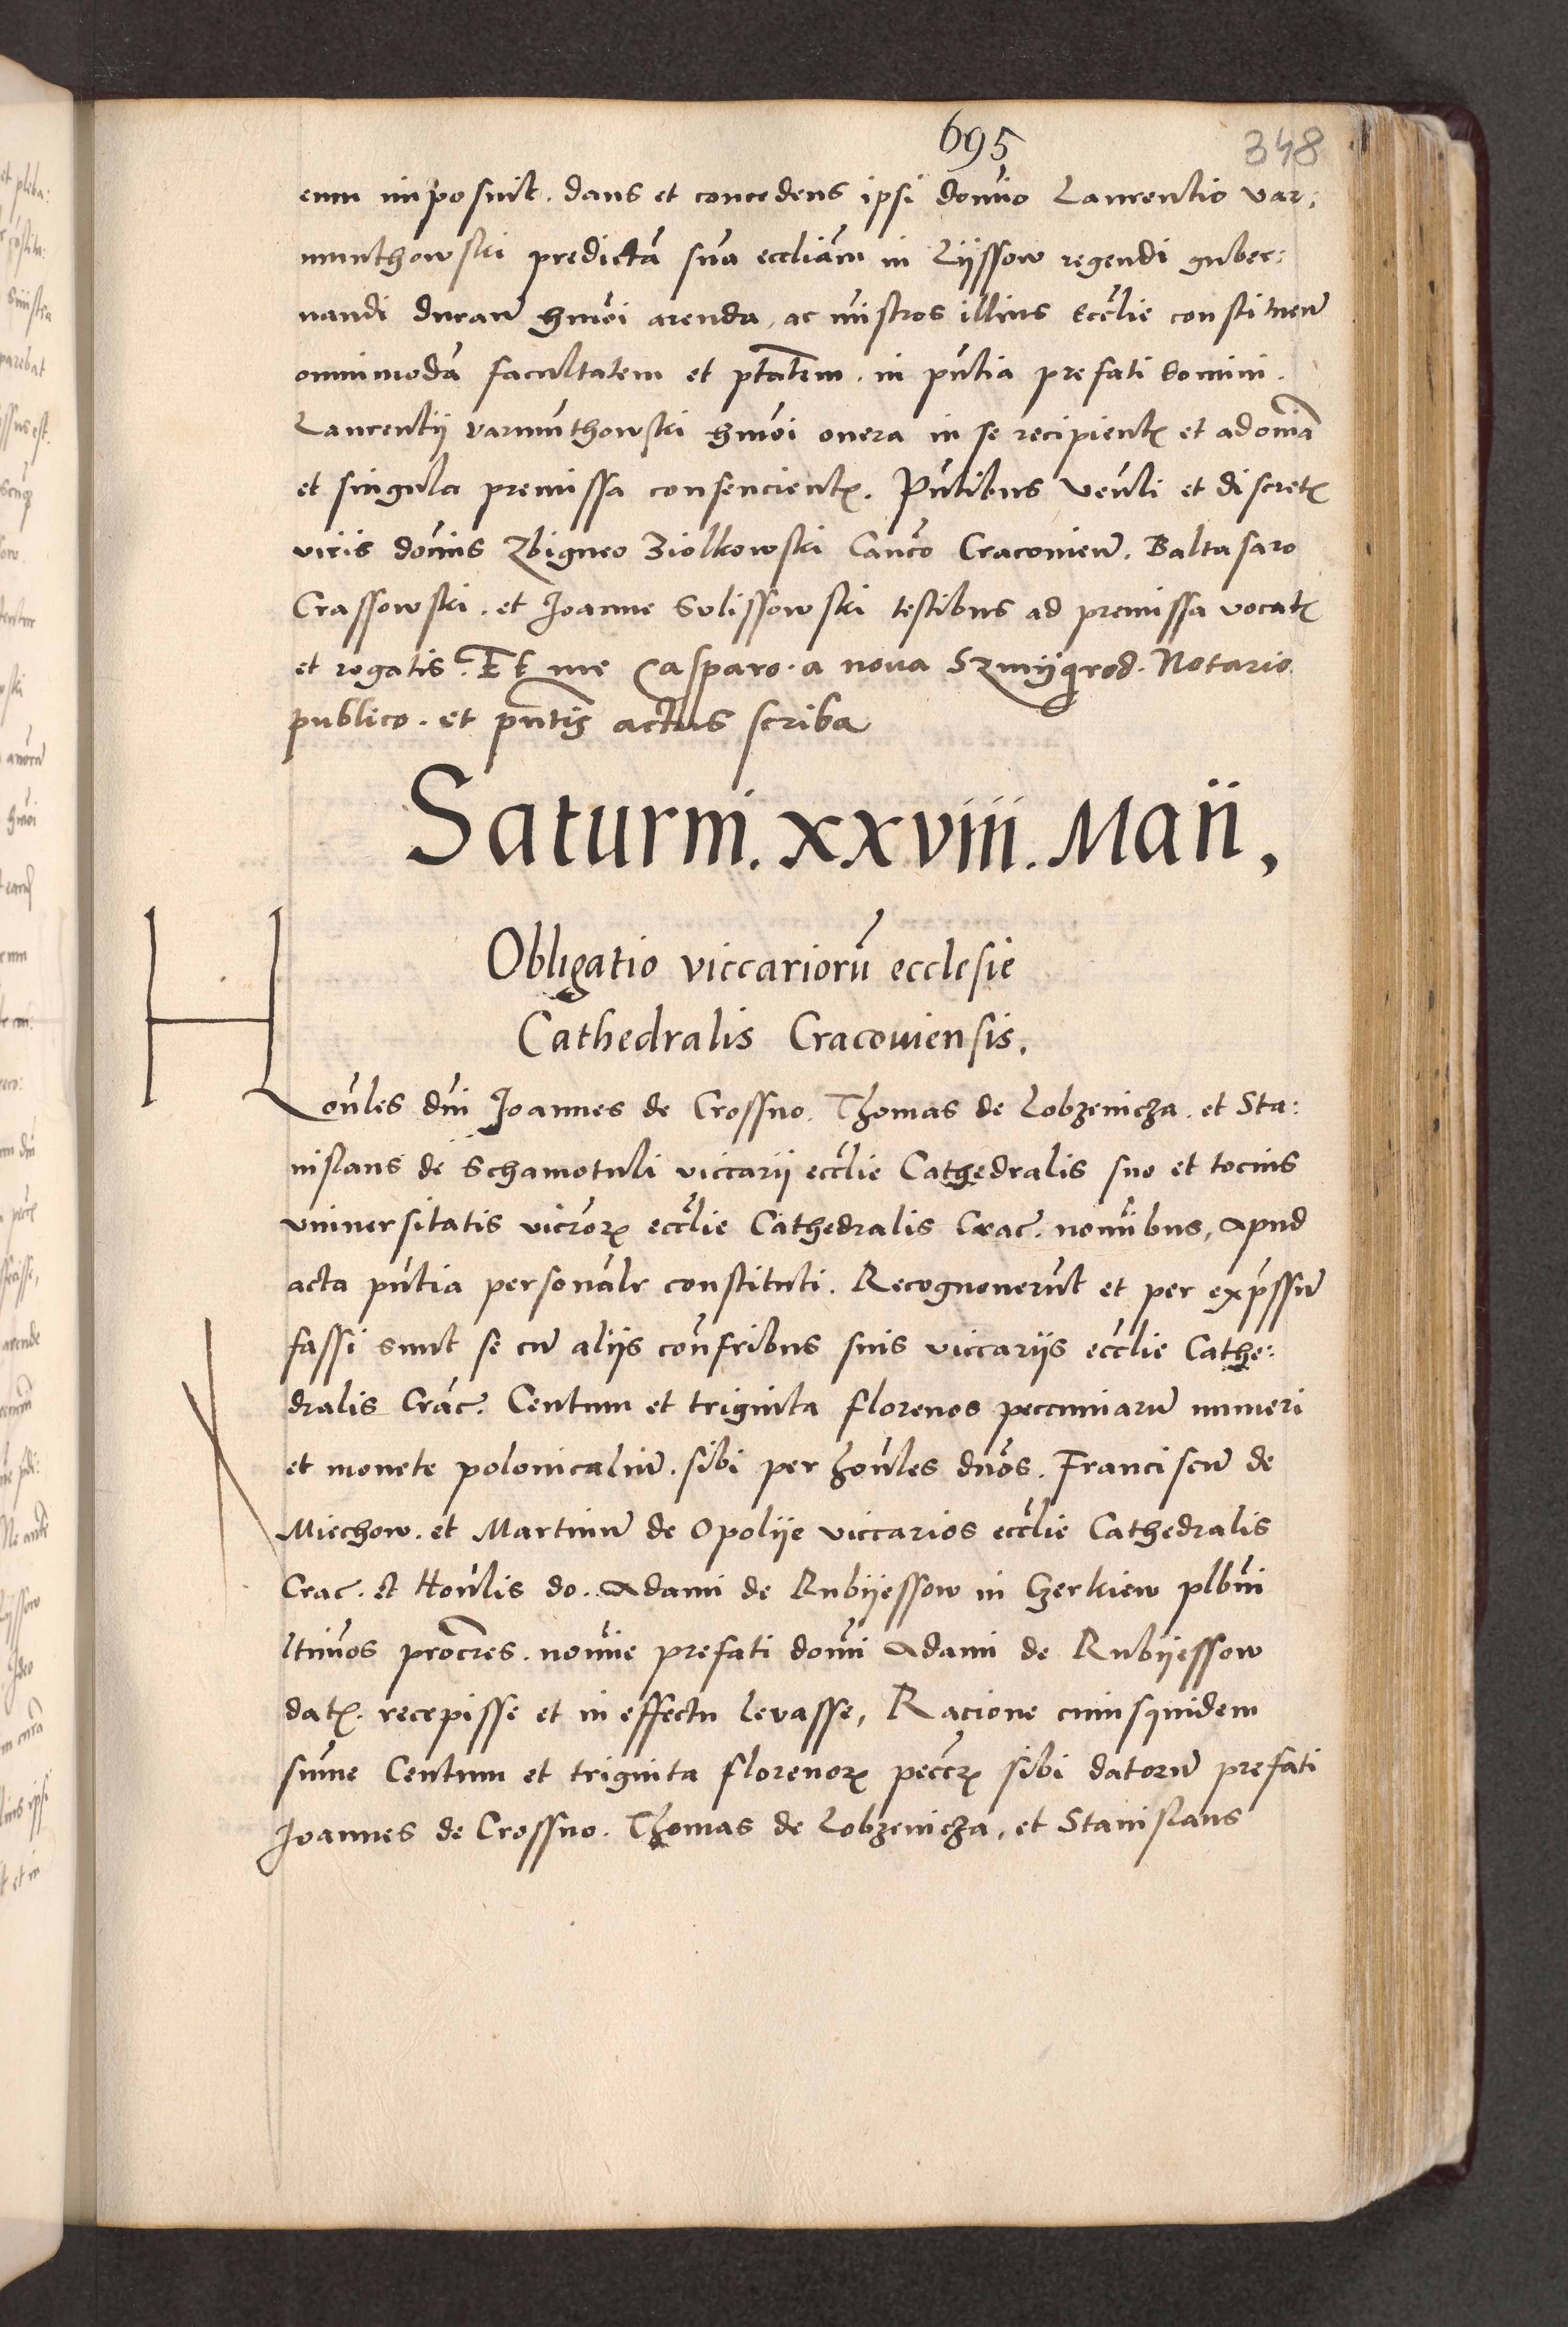 695
348
eum imposuit. dans et concedens ipsi domno Laurentio Var:
munthowski predictā suā eccliam in Lijssow regendi guber:
nandi duran̄ hmōi arenda, ac mīstros illius Ecclie constituen̄
omnimodā facultatem et ptatem. in pn̄tia prefati Domini.
Laurentij varmūthowski hmōi onera in se recipientꝭ et ad om̄ia
et singula premissa consencientꝭ. Pn̄tibus Ven̄li et discretꝭ
viris domīs Zbigneo Ziolkowski Canco Cracouien̄. Baltasaro
Crassowski. et Joanne Sulissowski testibus ad premissa vocatꝭ
et rogatis. Et me Casparo. a noua Szmijgrod. Notario
publico. et pn̄tis actus scriba
Saturni. xxviii. Maii,
Obligatio viccariorū ecclesie
Cathedralis Cracouiensis.
Honūles dn̄i Joannes de Crossno. Thomas de Lobzenicza. et Sta:
nislaus de Schamotuli viccarij ecclie Cathedralis suo et tocius
vniuersitatis vicrorꝝ ecclie Cathedralis Crac. nomībus, Apud
acta pn̄tia personalr constituti. Recognouerūt et per expssū
fassi sunt se cū alijs confribus suis viccarijs ecclie Cathe:
dralis Crac. Centum et triginta florenos peccuniarū numeri
et monete polonicaliū. sibi per honūles dnōs. Franciscū de
Miechow. et Martinū de Opolije viccarios ecclie Cathedralis
Crac. et Honūlis do. Adami de Rubijessow in Czerkiew plbni
ltimōs procres. nomīe prefati domī Adami de Rubijessow
datꝭ. recepisse et in effectu levasse, Racione cuiusquidem
sūme Centum et triginta florenorꝝ peccrꝝ sibi datorū prefati
Joannes de Crossno. Thomas de Lobzenicza, et Stanislaus